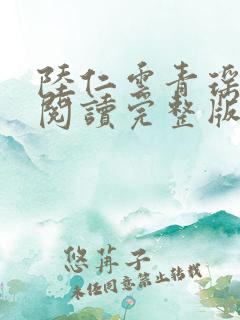 陸仁雲青瑤
閱讀完整版
悠苒子
未经同意禁止转载